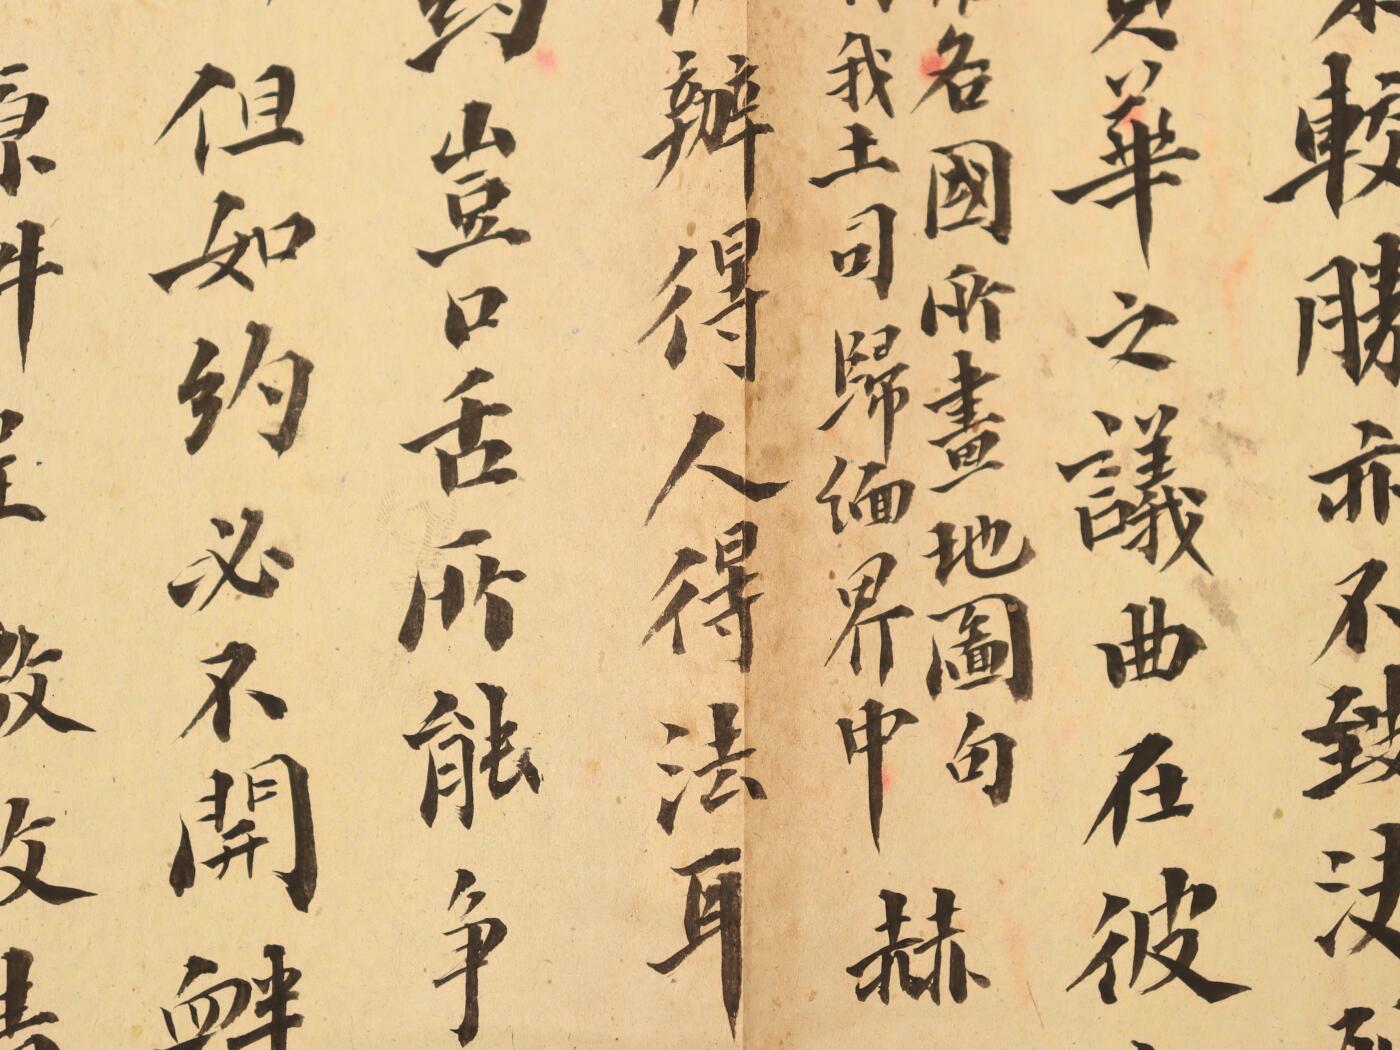 較勝亦不致決
華之議曲在彼
各國所畫地圖句
我土司歸緬界中
赫
辦得人得法耳
豈口舌所能争
但如約必不開衅
原件
改